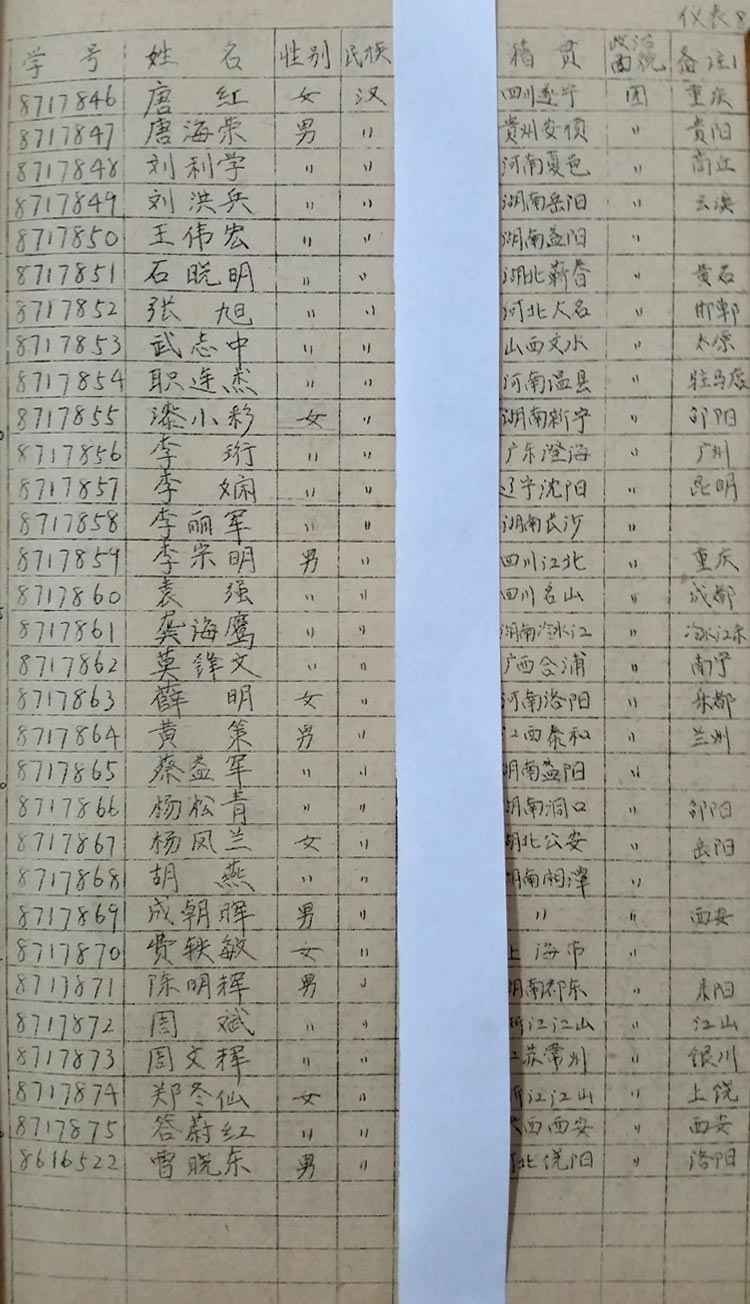 仪表8
学号 姓名 性别 民族 籍贯 政治面貌 备注
8717846 唐红 女 汉 四川遂宁 团 重庆
8717847 唐海荣 男 〃 贵州安顺 〃 贵阳
8717848 刘利学 〃 〃 河南夏邑 〃 商丘
8717849 刘洪兵 〃 〃 湖南岳阳 〃 云溪
8717850 王伟宏 〃 〃 湖南益阳 〃
8717851 石晓明 〃 〃 湖北蕲春 〃 黄石
8717852 张旭 〃 〃 河北大名 〃 邯郸
8717853 武志中 〃 〃 山西文水 〃 太原
8717854 职连杰 〃 〃 河南温县 〃 驻马店
8717855 漆小彩 女 〃 湖南新宁 〃 邵阳
8717856 李珩 〃 〃 广东澄海 〃 广州
8717857 李娴 〃 〃 辽宁沈阳 〃 昆明
8717858 李丽军 〃 〃 湖南长沙 〃
8717859 李宗明 男 〃 四川江北 〃 重庆
8717860 袁强 〃 〃 四川名山 〃 成都
8717861 龚海鹰 〃 〃 湖南冷水江 〃 冷水江市
8717862 莫锋文 〃 〃 广西合浦 〃 南宁
8717863 薛明 女 〃 河南洛阳 〃 乐都
8717864 黄策 男 〃 江西泰和 〃 兰州
8717865 蔡益军 〃 〃 湖南益阳 〃
8717866 杨松青 〃 〃 湖南洞口 〃 邵阳
8717867 杨凤兰 女 〃 湖北公安 〃 岳阳
8717868 胡燕 〃 〃 湖南湘潭 〃
8717869 成朝晖 男 〃 〃 〃 西安
8717870 费轶敏 女 〃 上海市 〃
8717871 陈明辉 男 〃 湖南祁东 〃 耒阳
8717872 周斌 〃 〃 浙江江山 〃 江山
8717873 周文辉 〃 〃 江苏常州 〃 银川
8717874 郑冬仙 女 〃 浙江江山 〃 上饶
8717875 答蔚红 〃 〃 陕西西安 〃 西安
8616522 曹晓东 男 〃 河北饶阳 〃 洛阳